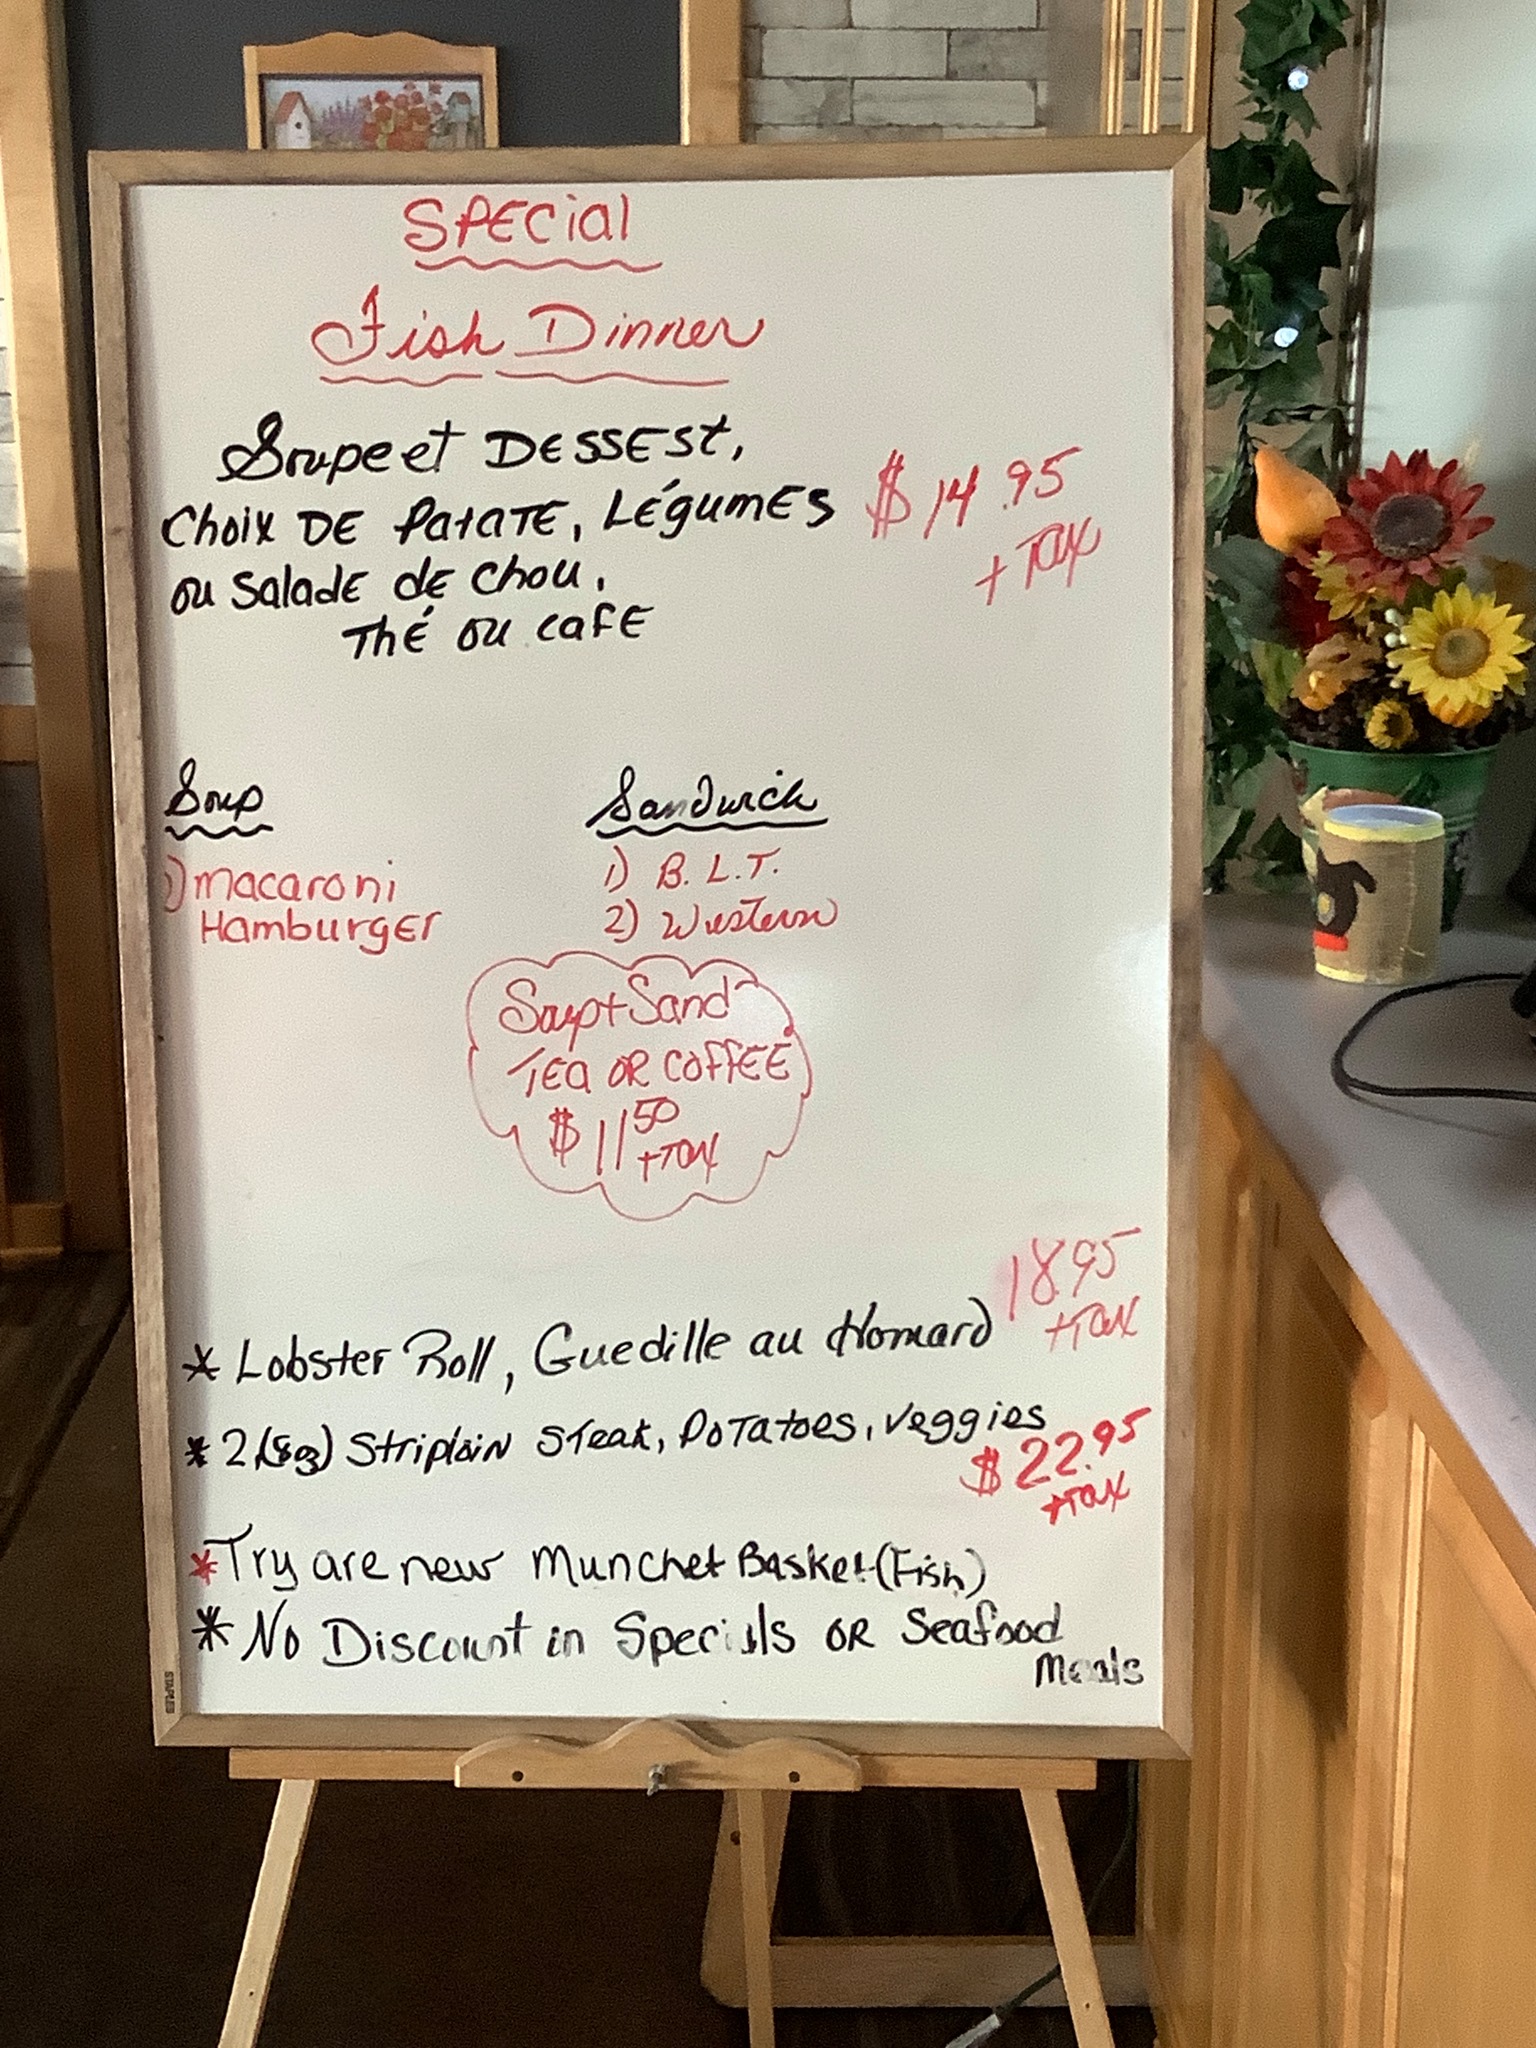 SPECial
Fish Dinner
Soupe et DESSESt,
Choix DE PatATE, LÉgumES
ou SaladE dE Chou,
ThÉ ou cafE
$14.95
+ Tax
Soup
Sandwich
1) macaroni
HamburgEr
1) B.L.T.
2) Western
Soup + Sand
TEa OR COFFEE
$11 50
+ Tax
18.95
+ Tax
* Lobster Roll, Guedille au Homard
* 2 (8oz) Striploin Steak, Potatoes, Veggies
$22.95
+ Tax
* Try are new Munchet Basket (Fish)
* No Discount in Specials OR Seafood
Meals
STAPLES